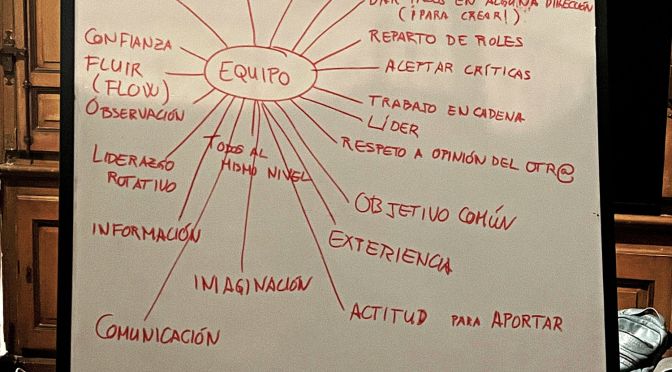 DAR PASOS EN ALGUNA DIRECCIÓN
(¡PARA CREAR!)
CONFIANZA
FLUIR
(FLOW)
OBSERVACIÓN
EQUIPO
REPARTO DE ROLES
ACEPTAR CRÍTICAS
TRABAJO EN CADENA
LÍDER
RESPETO A OPINIÓN DEL OTR@
LIDERAZGO
ROTATIVO
TODOS AL
MISMO NIVEL
OBJETIVO COMÚN
INFORMACIÓN
EXPERIENCIA
IMAGINACIÓN
ACTITUD PARA APORTAR
COMUNICACIÓN